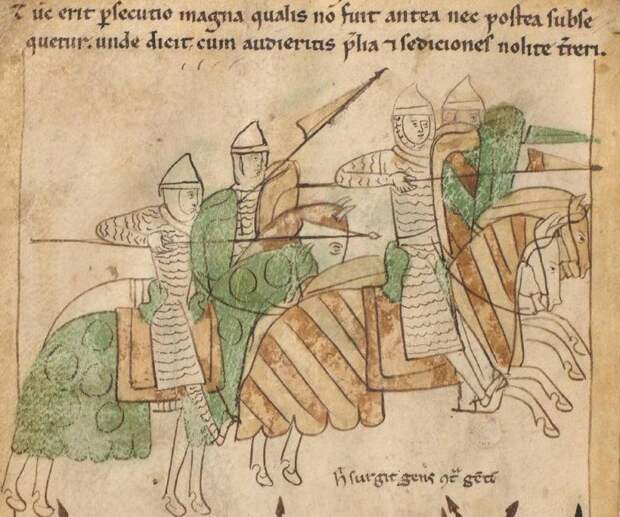 Tūc erit p̄secutio magna qualis nō fuit antea nec postea subse
quetur. unde dicit cum audieritis p̄lia ⁊ sediciones nolite t̄reri.
h̄ surgit gens ɔt̄ gētē